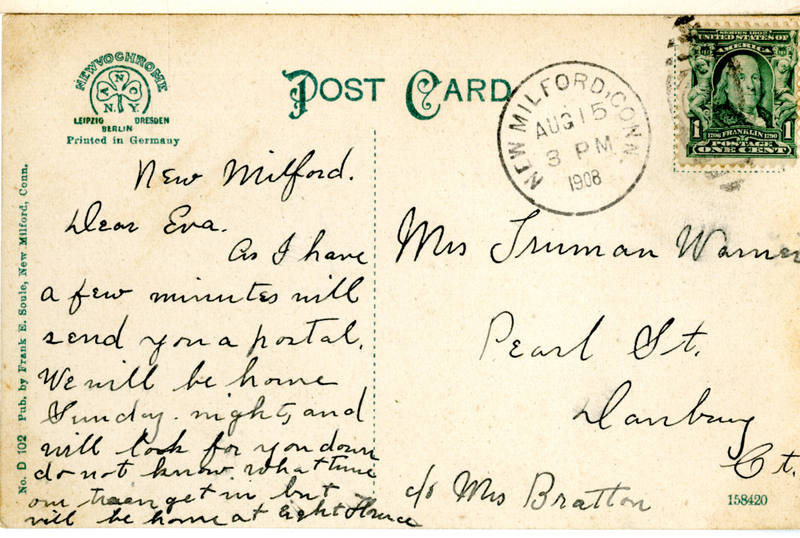 NEWVOCHROME
A N C
N.Y.
LEIPZIG DRESDEN
BERLIN
Printed in Germany
POST CARD
NEW MILFORD, CONN.
AUG 15
3 PM
1908
SERIES 1902
UNITED STATES OF
AMERICA
1 1706 FRANKLIN 1790 1
POSTAGE
ONE CENT
No. D 102 Pub. by Frank E. Soule, New Milford, Conn.
New Milford.
Dear Eva.
As I have
a few minutes will
send you a postal.
We will be home
Sunday. night, and
will look for you down
do not know what time
our train get in but
will be home at Eight
Mrs Truman Warner
Pearl St.
Danbury
Ct.
c/o Mrs Bratton
158420